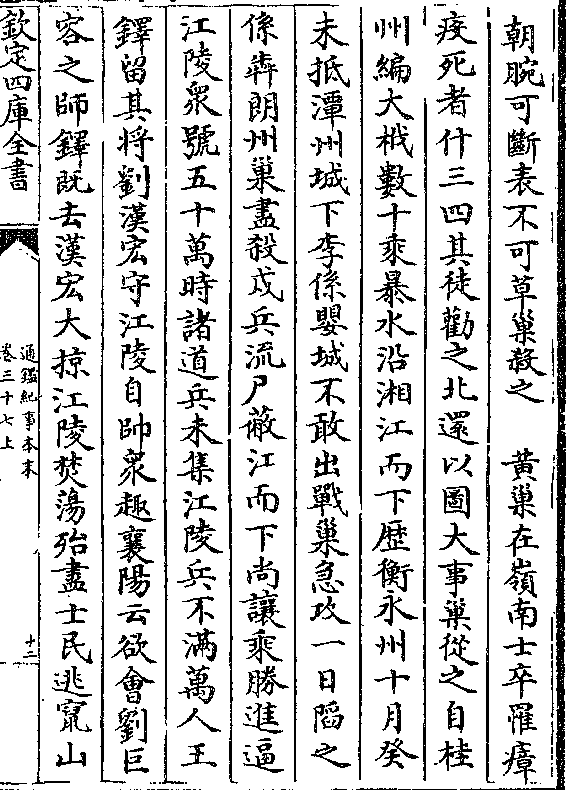 朝腕可斷表不可草巢殺之　黄巢在嶺南士卒罹瘴
疫死者什三四其徒勸之北還以圖大事巢從之自桂
州編大栰數十乘暴水沿湘江而下歴衡永州十月癸
未抵潭州城下李係嬰城不敢出戰巢急攻一日䧟之
係犇朗州巢盡殺戍兵流尸蔽江而下尚讓乘勝進逼
江陵衆號五十萬時諸道兵未集江陵兵不滿萬人王
鐸留其将劉漢宏守江陵自帥衆趣襄陽云欲會劉巨
容之師鐸既去漢宏大掠江陵焚蕩殆盡士民逃竄山
欽定四庫全書
通鑑紀事本末
卷三十七上
十二